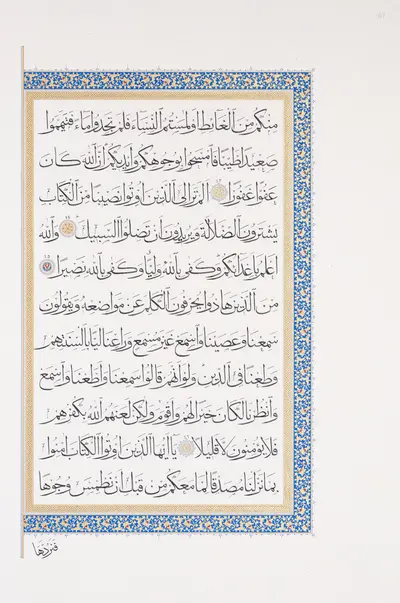 منكم من الغائط أو لمستم النساء فلم تجدوا ماء فتيمموا
صعيدا طيبا فامسحوا بوجوهكم وأيديكم إن الله كان
عفوا غفورا ألم تر إلى الذين أوتوا نصيبا من الكتاب
يشترون الضلالة ويريدون أن تضلوا السبيل والله
أعلم بأعدائكم وكفى بالله وليا وكفى بالله نصيرا
من الذين هادوا يحرفون الكلم عن مواضعه ويقولون
سمعنا وعصينا واسمع غير مسمع وراعنا ليا بألسنتهم
وطعنا في الدين ولو أنهم قالوا سمعنا وأطعنا واسمع
وانظرنا لكان خيرا لهم وأقوم ولكن لعنهم الله بكفرهم
فلا يؤمنون إلا قليلا يا أيها الذين أوتوا الكتاب آمنوا
بما نزلنا مصدقا لما معكم من قبل أن نطمس وجوها
فنردها